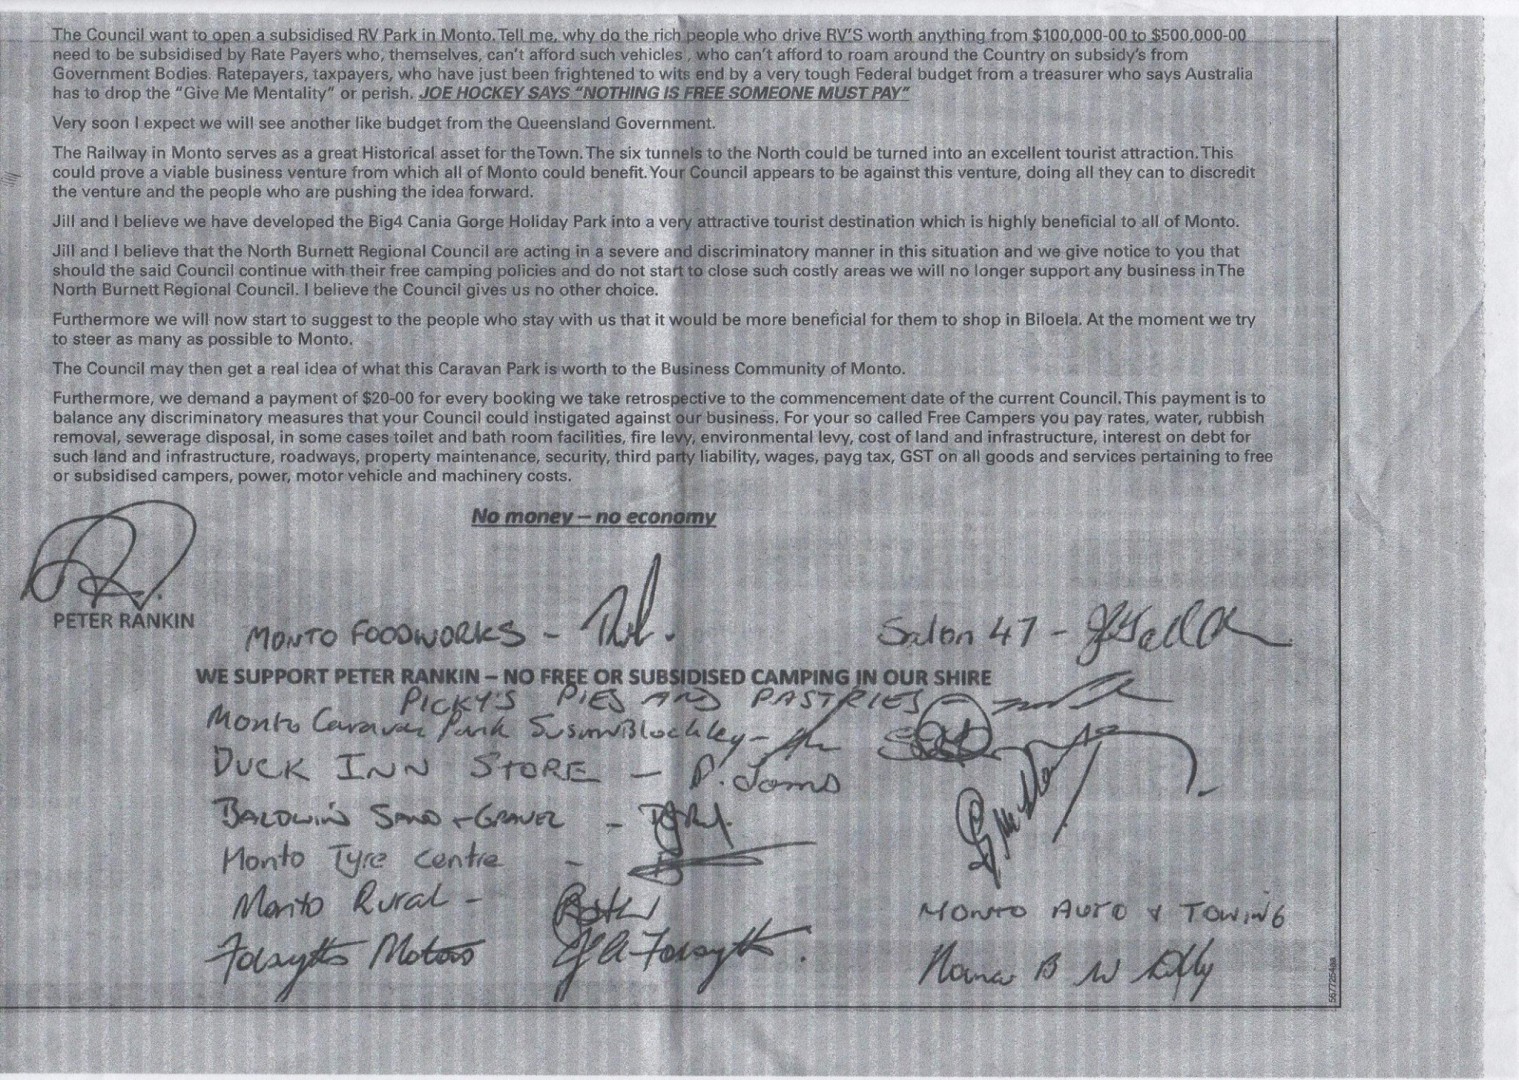 The Council want to open a subsidised RV Park in Monto. Tell me, why do the rich people who drive RV'S worth anything from $100,000-00 to $500,000-00
need to be subsidised by Rate Payers who, themselves, can't afford such vehicles , who can't afford to roam around the Country on subsidy's from
Government Bodies. Ratepayers, taxpayers, who have just been frightened to wits end by a very tough Federal budget from a treasurer who says Australia
has to drop the "Give Me Mentality" or perish. JOE HOCKEY SAYS "NOTHING IS FREE SOMEONE MUST PAY"
Very soon I expect we will see another like budget from the Queensland Government.
The Railway in Monto serves as a great Historical asset for the Town. The six tunnels to the North could be turned into an excellent tourist attraction. This
could prove a viable business venture from which all of Monto could benefit. Your Council appears to be against this venture, doing all they can to discredit
the venture and the people who are pushing the idea forward.
Jill and I believe we have developed the Big4 Cania Gorge Holiday Park into a very attractive tourist destination which is highly beneficial to all of Monto.
Jill and I believe that the North Burnett Regional Council are acting in a severe and discriminatory manner in this situation and we give notice to you that
should the said Council continue with their free camping policies and do not start to close such costly areas we will no longer support any business in The
North Burnett Regional Council. I believe the Council gives us no other choice.
Furthermore we will now start to suggest to the people who stay with us that it would be more beneficial for them to shop in Biloela. At the moment we try
to steer as many as possible to Monto.
The Council may then get a real idea of what this Caravan Park is worth to the Business Community of Monto.
Furthermore, we demand a payment of $20-00 for every booking we take retrospective to the commencement date of the current Council. This payment is to
balance any discriminatory measures that your Council could instigated against our business. For your so called Free Campers you pay rates, water, rubbish
removal, sewerage disposal, in some cases toilet and bath room facilities, fire levy, environmental levy, cost of land and infrastructure, interest on debt for
such land and infrastructure, roadways, property maintenance, security, third party liability, wages, payg tax, GST on all goods and services pertaining to free
or subsidised campers, power, motor vehicle and machinery costs.
No money – no economy
PETER RANKIN
MONTO FOODWORKS -
Salon 47 -
WE SUPPORT PETER RANKIN – NO FREE OR SUBSIDISED CAMPING IN OUR SHIRE
PICKY'S PIES AND PASTRIES -
Monto Caravan Park Susan Blockley -
DUCK INN STORE -
BALDWIN'S SAND + GRAVEL -
Monto Tyre Centre -
Monto Rural -
MONTO AUTO & TOWING
Forsyth Motors
5677254aa